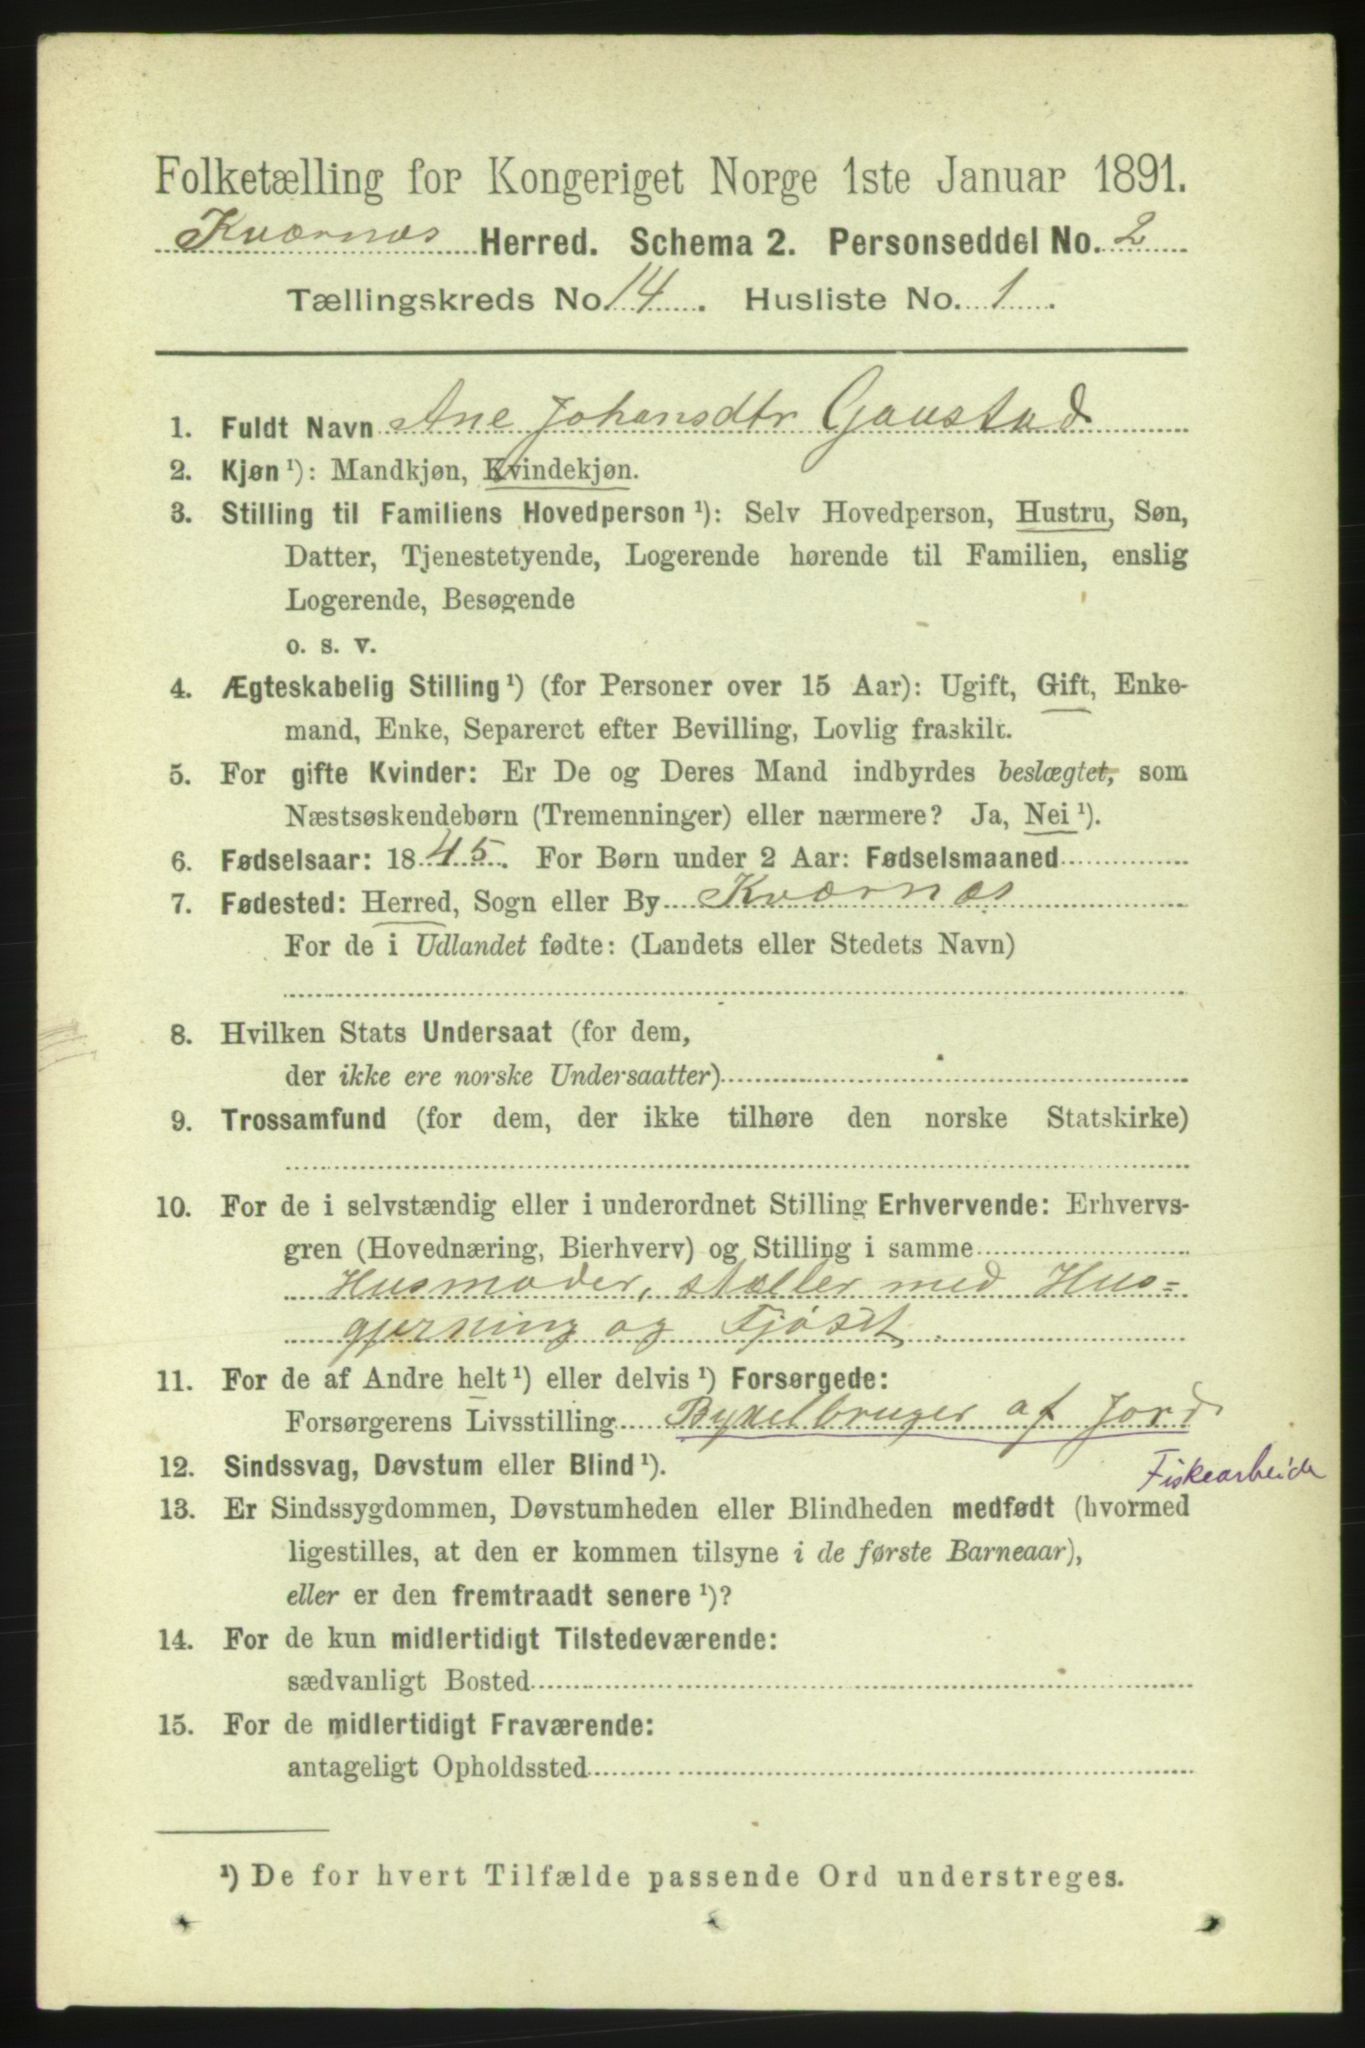 Folketælling for Kongeriget Norge 1ste Januar 1891.
Kværnæs Herred. Schema 2. Personseddel No. 2
Tællingskreds No. 14. Husliste No. 1.
1. Fuldt Navn Ane Johansdtr Gaustad
2. Kjøn ¹): Mandkjøn, Kvindekjøn.
3. Stilling til Familiens Hovedperson ¹): Selv Hovedperson, Hustru, Søn,
Datter, Tjenestetyende, Logerende hørende til Familien, enslig
Logerende, Besøgende
o. s. v.
4. Ægteskabelig Stilling ¹) (for Personer over 15 Aar): Ugift, Gift, Enke-
mand, Enke, Separeret efter Bevilling, Lovlig fraskilt.
5. For gifte Kvinder: Er De og Deres Mand indbyrdes beslægtet, som
Næstsøskendebørn (Tremenninger) eller nærmere? Ja, Nei ¹).
6. Fødselsaar: 1845. For Børn under 2 Aar: Fødselsmaaned
7. Fødested: Herred, Sogn eller By Kværnæs
For de i Udlandet fødte: (Landets eller Stedets Navn)
8. Hvilken Stats Undersaat (for dem,
der ikke ere norske Undersaatter)
9. Trossamfund (for dem, der ikke tilhøre den norske Statskirke)
10. For de i selvstændig eller i underordnet Stilling Erhvervende: Erhvervs-
gren (Hovednæring, Bierhverv) og Stilling i samme
Husmoder, stæller med Hus=
gjerning og Fjøset.
11. For de af Andre helt ¹) eller delvis ¹) Forsørgede:
Forsørgerens Livsstilling Byxelbruger af Jord
Fiskearbeide
12. Sindssvag, Døvstum eller Blind ¹).
13. Er Sindssygdommen, Døvstumheden eller Blindheden medfødt (hvormed
ligestilles, at den er kommen tilsyne i de første Barneaar),
eller er den fremtraadt senere ¹)?
14. For de kun midlertidigt Tilstedeværende:
sædvanligt Bosted
15. For de midlertidigt Fraværende:
antageligt Opholdssted
¹) De for hvert Tilfælde passende Ord understreges.